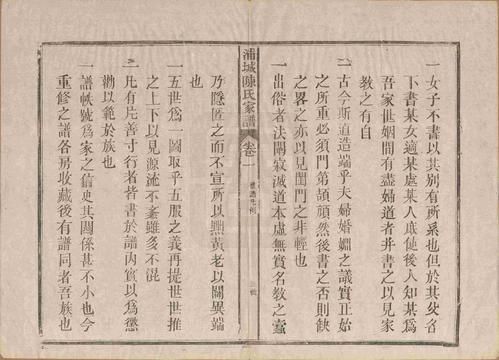 一女子不書以其別有所系也但於其父名
下書某女適某處某人庶使後人知某爲
吾家世姻間有盡婦道者并書之以見家
教之有自
一古今斯道造端乎夫婦婚婣之議實正始
之所重必須門第頡頏然後書之否則缺
之畧之亦以見閨門之非輕也
一出俗者法開寂滅道本虛無實名教之蠹
浦城陳氏家譜 卷一 凡例
乃隱匿之而不宣所以黜黃老以闢異端
也
一五世爲一圖取乎五服之義再提世世推
之上下以見源流不紊雖多不混
一凡有片善寸行者皆書於譜內實以爲懲
勸以範於族也
一譜帙號爲家之信史其關係甚不小也今
重修之譜各房收藏後有譜同者吾族也